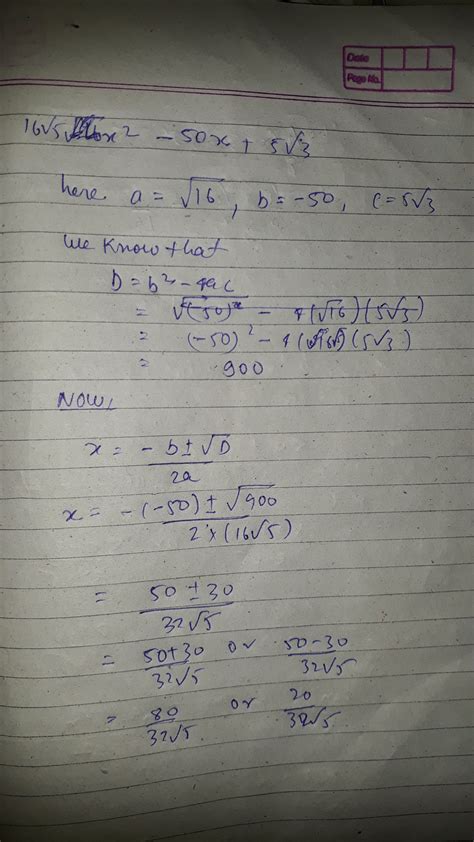 Date
Page No.
16√5 x² - 50x + 5√3
here a = √16, b = -50, c = 5√3
we know that
D = b² - 4ac
= √(-50)² - 4(√16)(5√3)
= (-50)² - 4( )(5√3)
= 900
NOW,
x = -b ± √D
2a
x = -(-50) ± √900
2 × (16√5)
= 50 ± 30
32√5
= 50+30 or 50-30
32√5 32√5
= 80 or 20
32√5 32√5